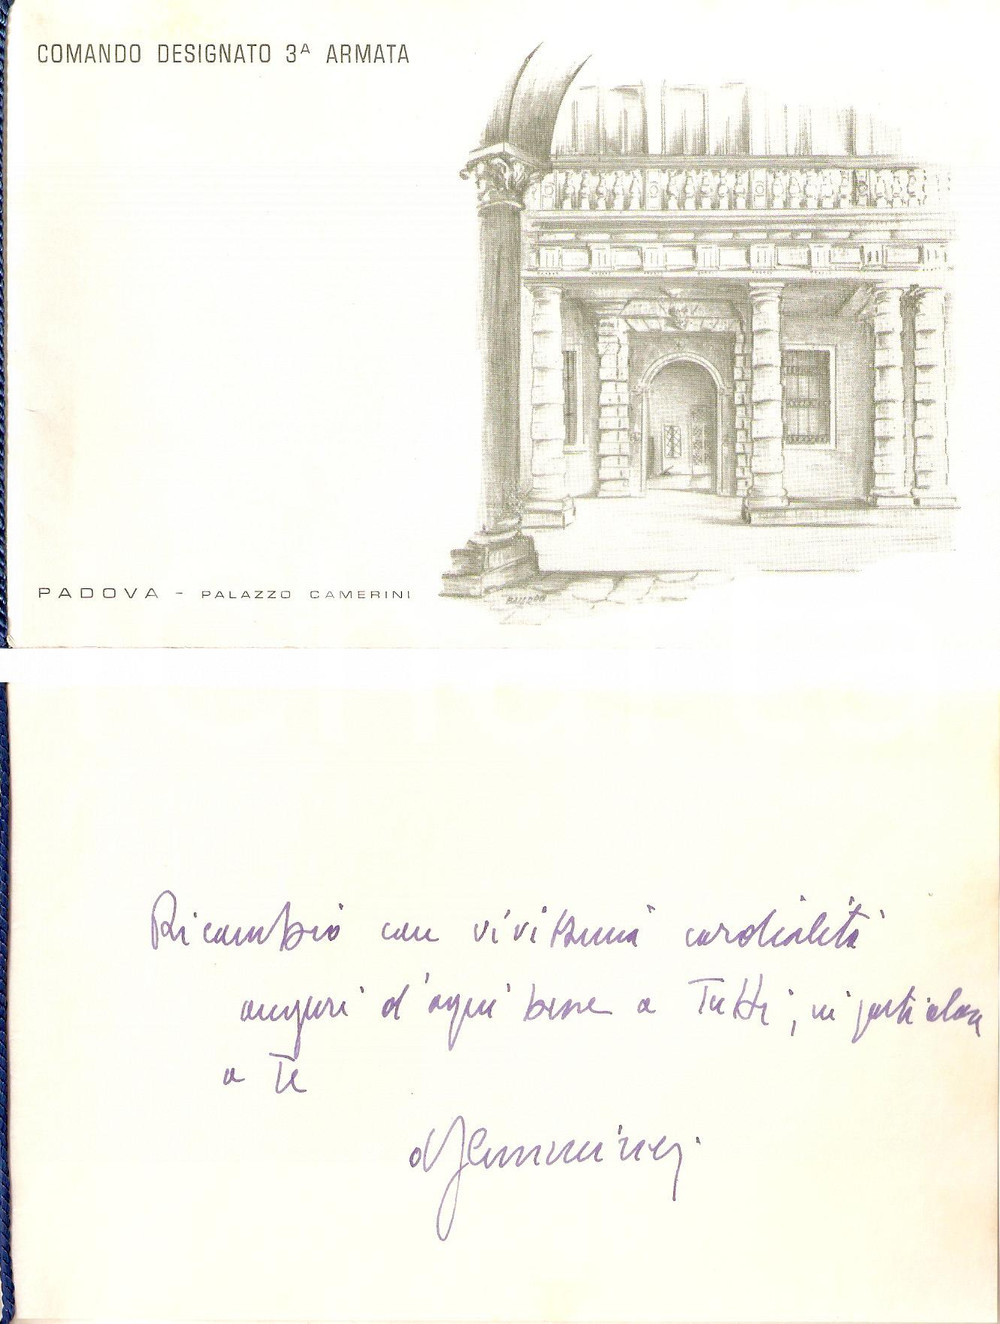 COMANDO DESIGNATO 3ᴬ ARMATA
PADOVA - PALAZZO CAMERINI
Ricambio con vivissima cordialità
auguri d'ogni bene a Tutti, in particolare
a Te